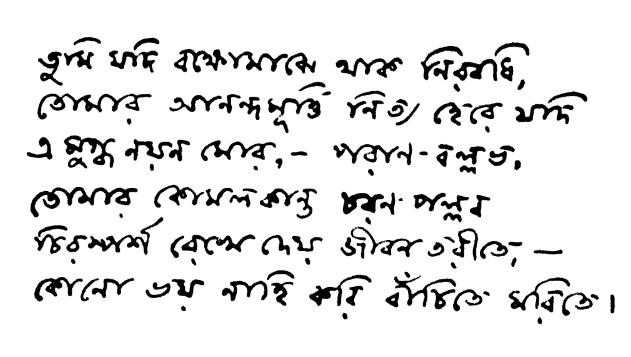 তুমি যদি বক্ষোমাঝে থাক নিরবধি,
তোমার আনন্দমূর্ত্তি নিত্য হেরে যদি
এ মুগ্ধ নয়ন মোর,— পরাণ-বল্লভ,
তোমার কোমলকান্ত চরণ-পল্লব
চিরস্পর্শ রেখে দেয় জীবন তরীতে,—
কোনো ভয় নাহি করি বাঁচিতে মরিতে।